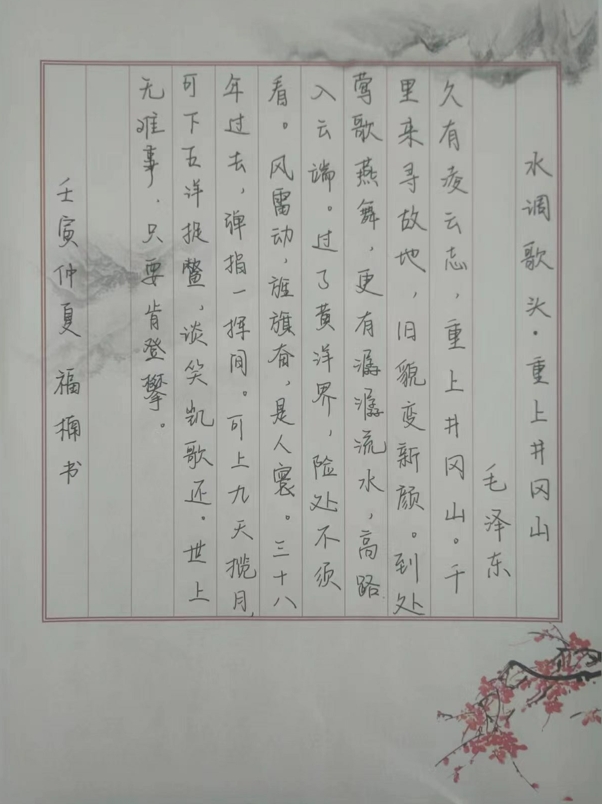 水调歌头·重上井冈山
毛泽东
久有凌云志，重上井冈山。千
里来寻故地，旧貌变新颜。到处
莺歌燕舞，更有潺潺流水，高路
入云端。过了黄洋界，险处不须
看。风雷动，旌旗奋，是人寰。三十八
年过去，弹指一挥间。可上九天揽月
可下五洋捉鳖，谈笑凯歌还。世上
无难事，只要肯登攀。
壬寅仲夏 福楠书